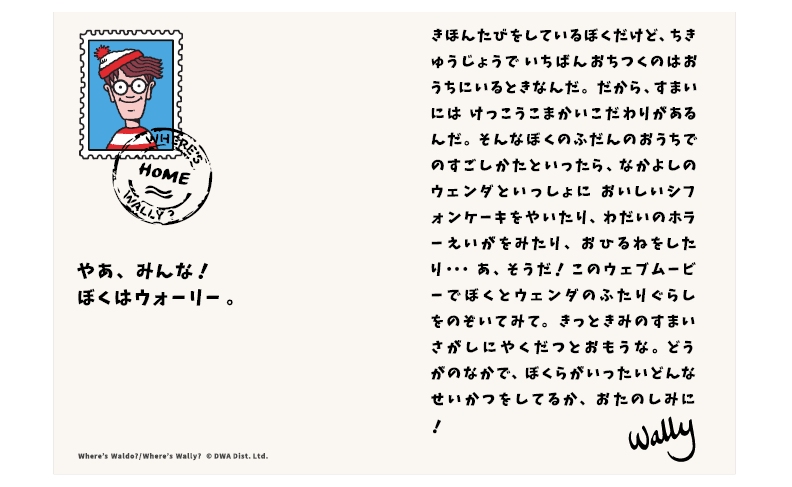 WHERE'S
HOME
WALLY?
やあ、みんな!
ぼくはウォーリー。
きほんたびをしているぼくだけど、ちき
ゅうじょうで いちばん おちつくのはお
うちにいるときなんだ。だから、すまい
には けっこうこまかいこだわりがある
んだ。そんなぼくのふだんのおうちで
のすごしかたといったら、なかよしの
ウェンダといっしょに おいしいシフ
ォンケーキをやいたり、わだいのホラ
ーえいがをみたり、おひるねをした
り・・・ あ、そうだ!このウェブムービ
ーでぼくとウェンダのふたりぐらし
をのぞいてみて。きっときみのすまい
さがしにやくだつとおもうな。どう
がのなかで、ぼくらがいったいどんな
せいかつをしてるか、おたのしみに
!
Wally
Where's Waldo?/Where's Wally? © DWA Dist. Ltd.